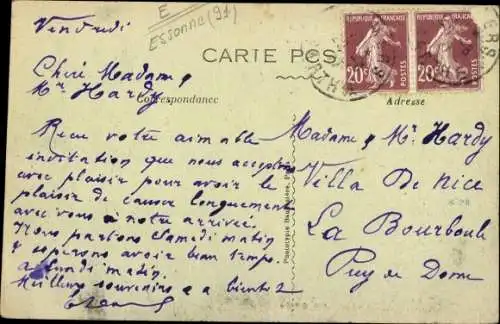 Vendredi
E
Essonne (91)
CARTE POS
REPUBLIQUE FRANÇAISE
20c
POSTES
20c
POSTES
Chère Madame &
Mr Hardy
Correspondance
Adresse
Recu votre aimable
invitation que nous acceptons
avec plaisir pour avoir le
plaisir de causer longuement
avec vous a notre arrivée.
Nous partons Samedi matin
& esperons avoir beau temps.
a Lundi matin.
Meilleurs souvenirs & a bientot
Madame & Mr Hardy
Villa De Nice
La Bourboule
Puy de Dome